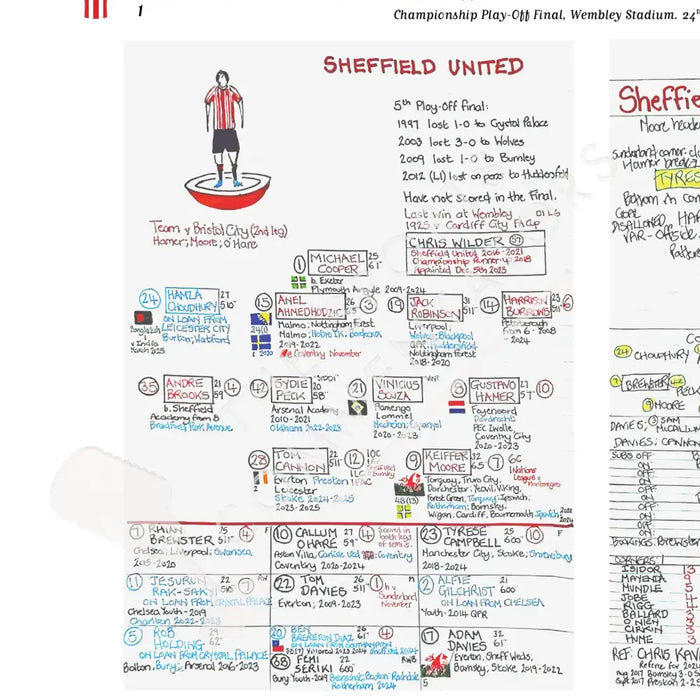 1
Championship Play-Off Final, Wembley Stadium. 24
SHEFFIELD UNITED
5th Play-Off Final:
1997 lost 1-0 to Crystal Palace
2003 lost 3-0 to Wolves
2009 lost 1-0 to Burnley
2012 (L1) lost on pens to Huddersfield
Have not scored in the Final.
Last win at Wembley
1925 v Cardiff City FA Cup
Team v Bristol City (2nd leg)
Hamer; Moore; O'Hare
CHRIS WILDER 57
Sheffield United 2016-2021
Championship Runner-up 2018
Appointed Dec 5th 2023
1 MICHAEL COOPER 25 6'1"
b. Exeter
Plymouth Argyle 2009-2024
24 HAMZA CHOUDHURY 27 5'10"
ON LOAN FROM
LEICESTER CITY
Burton; Watford
Bangladesh
v India
March 2025
15 ANEL AHMEDHODZIC 26 6'5" 6
Malmo; Nottingham Forest
Malmo; Hobro IK; Bordeaux
2019-2022
Coventry November
19 JACK ROBINSON 31 5'11"
Liverpool;
Wolves; Blackpool
QPR; Huddersfield
Nottingham Forest
2018-2020
14 HARRISON BURROWS 23 5'11" 6
Peterborough
from 6 2018
- 2024
35 ANDRE BROOKS 21 5'9" 4
b. Sheffield
Academy from 5
Bradford Park Avenue
42 SYDIE PECK "SIDDI" 20 5'8"
Arsenal Academy
2010-2021
Oldham 2022-2023
21 VINICIUS SOUZA
Flamengo
Lommel
Mechelen; Espanyol
2020-2023
8 GUSTAVO HAMER 27 5'7" 10
Feyenoord
Dordrecht
PEC Zwolle;
Coventry City
2020-2023
28 TOM CANNON 22 5'11" 12 10C
Everton Preston
Leicester
Stoke 2024-2025
2023-2025
9 KEIFFER MOORE 32 6'5" 7 6C
Nations
League v
Montenegro
Torquay; Truro City,
Dorchester; Yeovil; Viking;
Forest Green, Torquay; Ipswich,
Rotherham; Barnsley,
Wigan, Cardiff, Bournemouth Ipswich
7 RHIAN BREWSTER 25 5'11" 4 F
Chelsea; Liverpool; Swansea
2015-2020
10 CALLUM O'HARE 27 5'9" 4 Scored in
both legs
of semis.
Aston Villa; Carlisle Utd Coventry
Coventry 2020-2024
23 TYRESE CAMPBELL 25 6'00" 10 F
Manchester City, Stoke; Shrewsbury
2018-2024
11 JESURUN RAK-SAKYI 22 5'10" 7 RW
ON LOAN FROM CRYSTAL PALACE
Chelsea Youth - 2019
Charlton 2022-2023
22 TOM DAVIES 26 5'11" 1 M
h v
Sunderland
November
Everton; 2009-2023
2 ALFIE GILCHRIST 21 6'00"
ON LOAN FROM CHELSEA
Youth - 2014 QPR
5 ROB HOLDING 29 6'2"
ON LOAN FROM CRYSTAL PALACE
Bolton, Bury; Arsenal 2016-2023
20 BEN BRERETON DIAZ 26 6'1" 4
ON LOAN FROM SOUTHAMPTON
68 FEMI SERIKI 6'00" RWB
Bury Youth-2019 Beerschot; Boston; Rochdale
Rotherham 2024
17 ADAM DAVIES 32 6'1"
Everton, Sheff Weds,
Barnsley, Stoke 2019-2022
Sheffie
Moore header
TYRES
GOAL
DISALLOWED, HAR
VAR-OFFSIDE.
24 CHOUDHURY
7 BREWSTER 42
9 MOORE
DAVIES; SAM McCALLUM
DAVIES; CANNON
SUBS OFF
ON
OFF
ON
OFF
ON
OFF
ON
OFF
ON
BOOKINGS: BREWSTER
CORNERS
ISIDOR 13
MAYENDA
MUNDLE
JOBE
RIGG
BALLARD
O'NIEN
CIRKIN
HUME
REF: CHRIS KAV